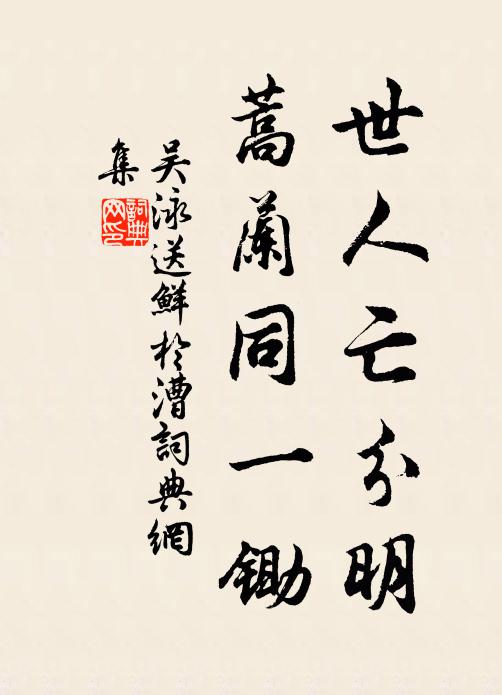 世人亡分明
蒿蘭同一鋤
吴泳送鮮於漕詞典網
集
詞典网印